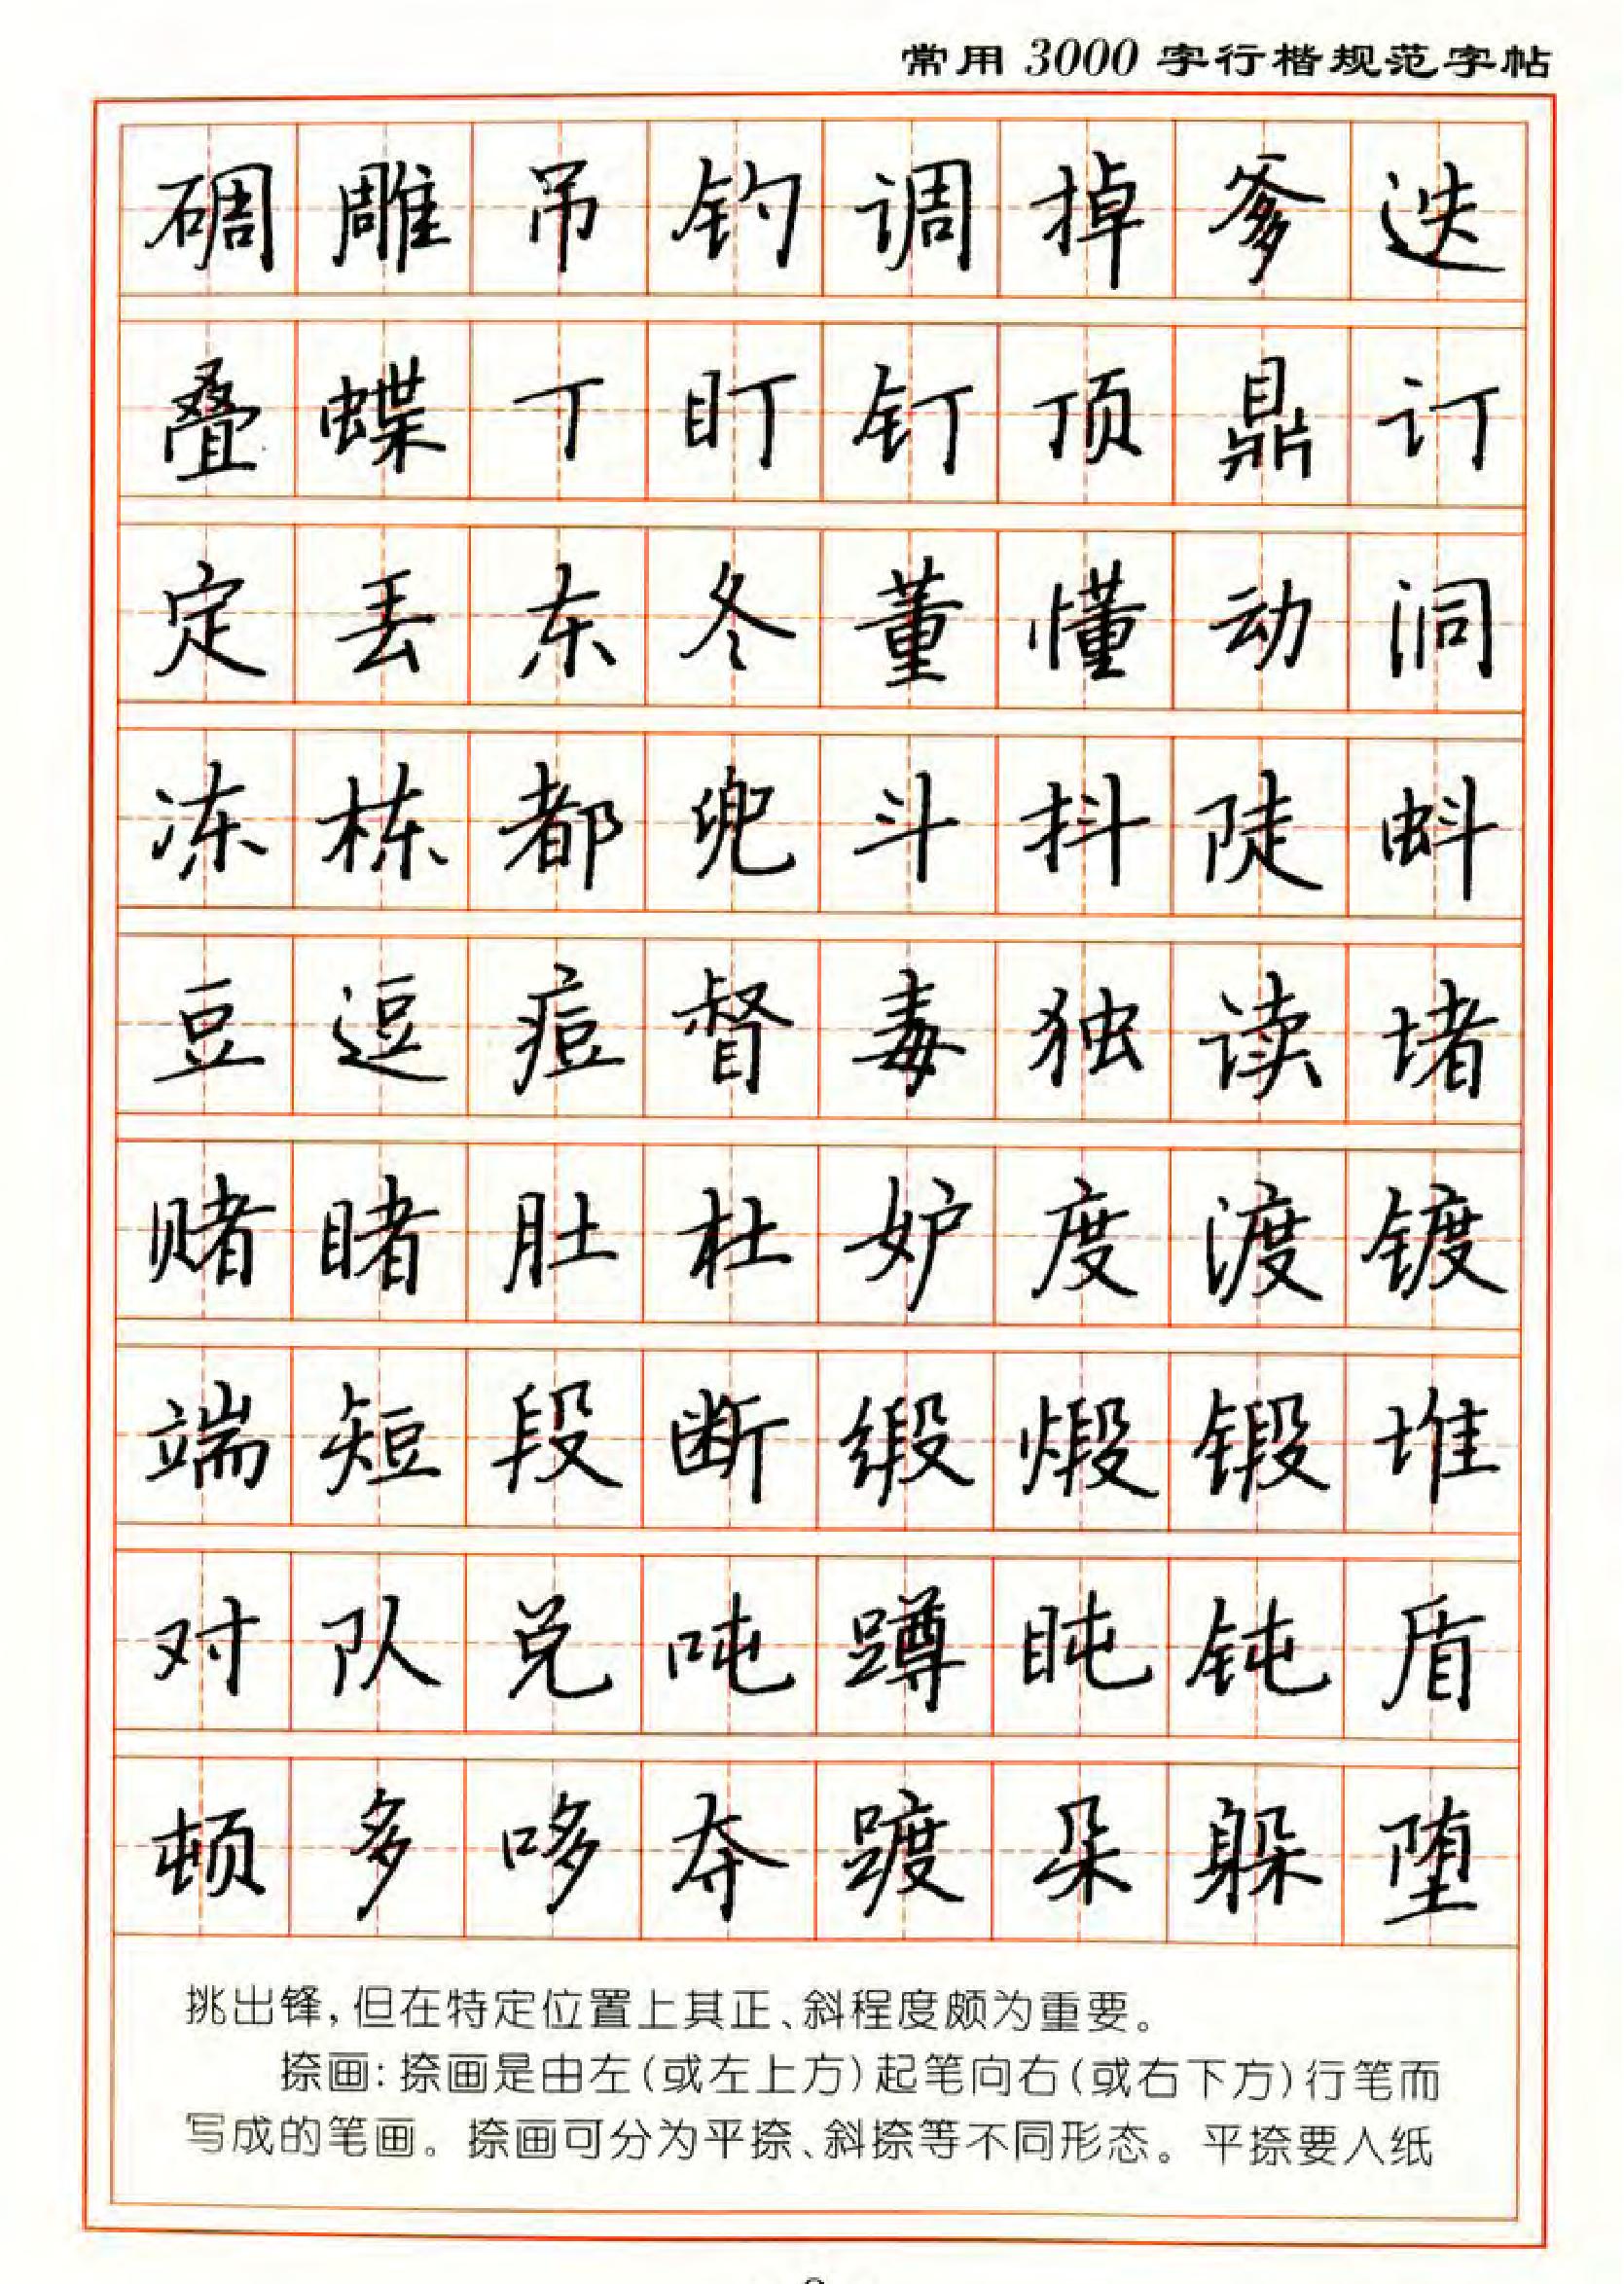 常用 3000 字行楷规范字帖
碉 雕 吊 钓 调 掉 爹 迭
叠 蝶 丁 盯 钉 顶 鼎 订
定 丢 东 冬 董 懂 动 洞
冻 栋 都 兜 斗 抖 陡 蚪
豆 逗 痘 督 毒 独 读 堵
赌 睹 肚 杜 妒 度 渡 镀
端 短 段 断 缎 煅 锻 堆
对 队 兑 吨 蹲 盹 钝 盾
顿 多 哆 夺 踱 朵 躲 堕
挑出锋，但在特定位置上其正、斜程度颇为重要。
捺画：捺画是由左（或左上方）起笔向右（或右下方）行笔而
写成的笔画。捺画可分为平捺、斜捺等不同形态。平捺要入纸